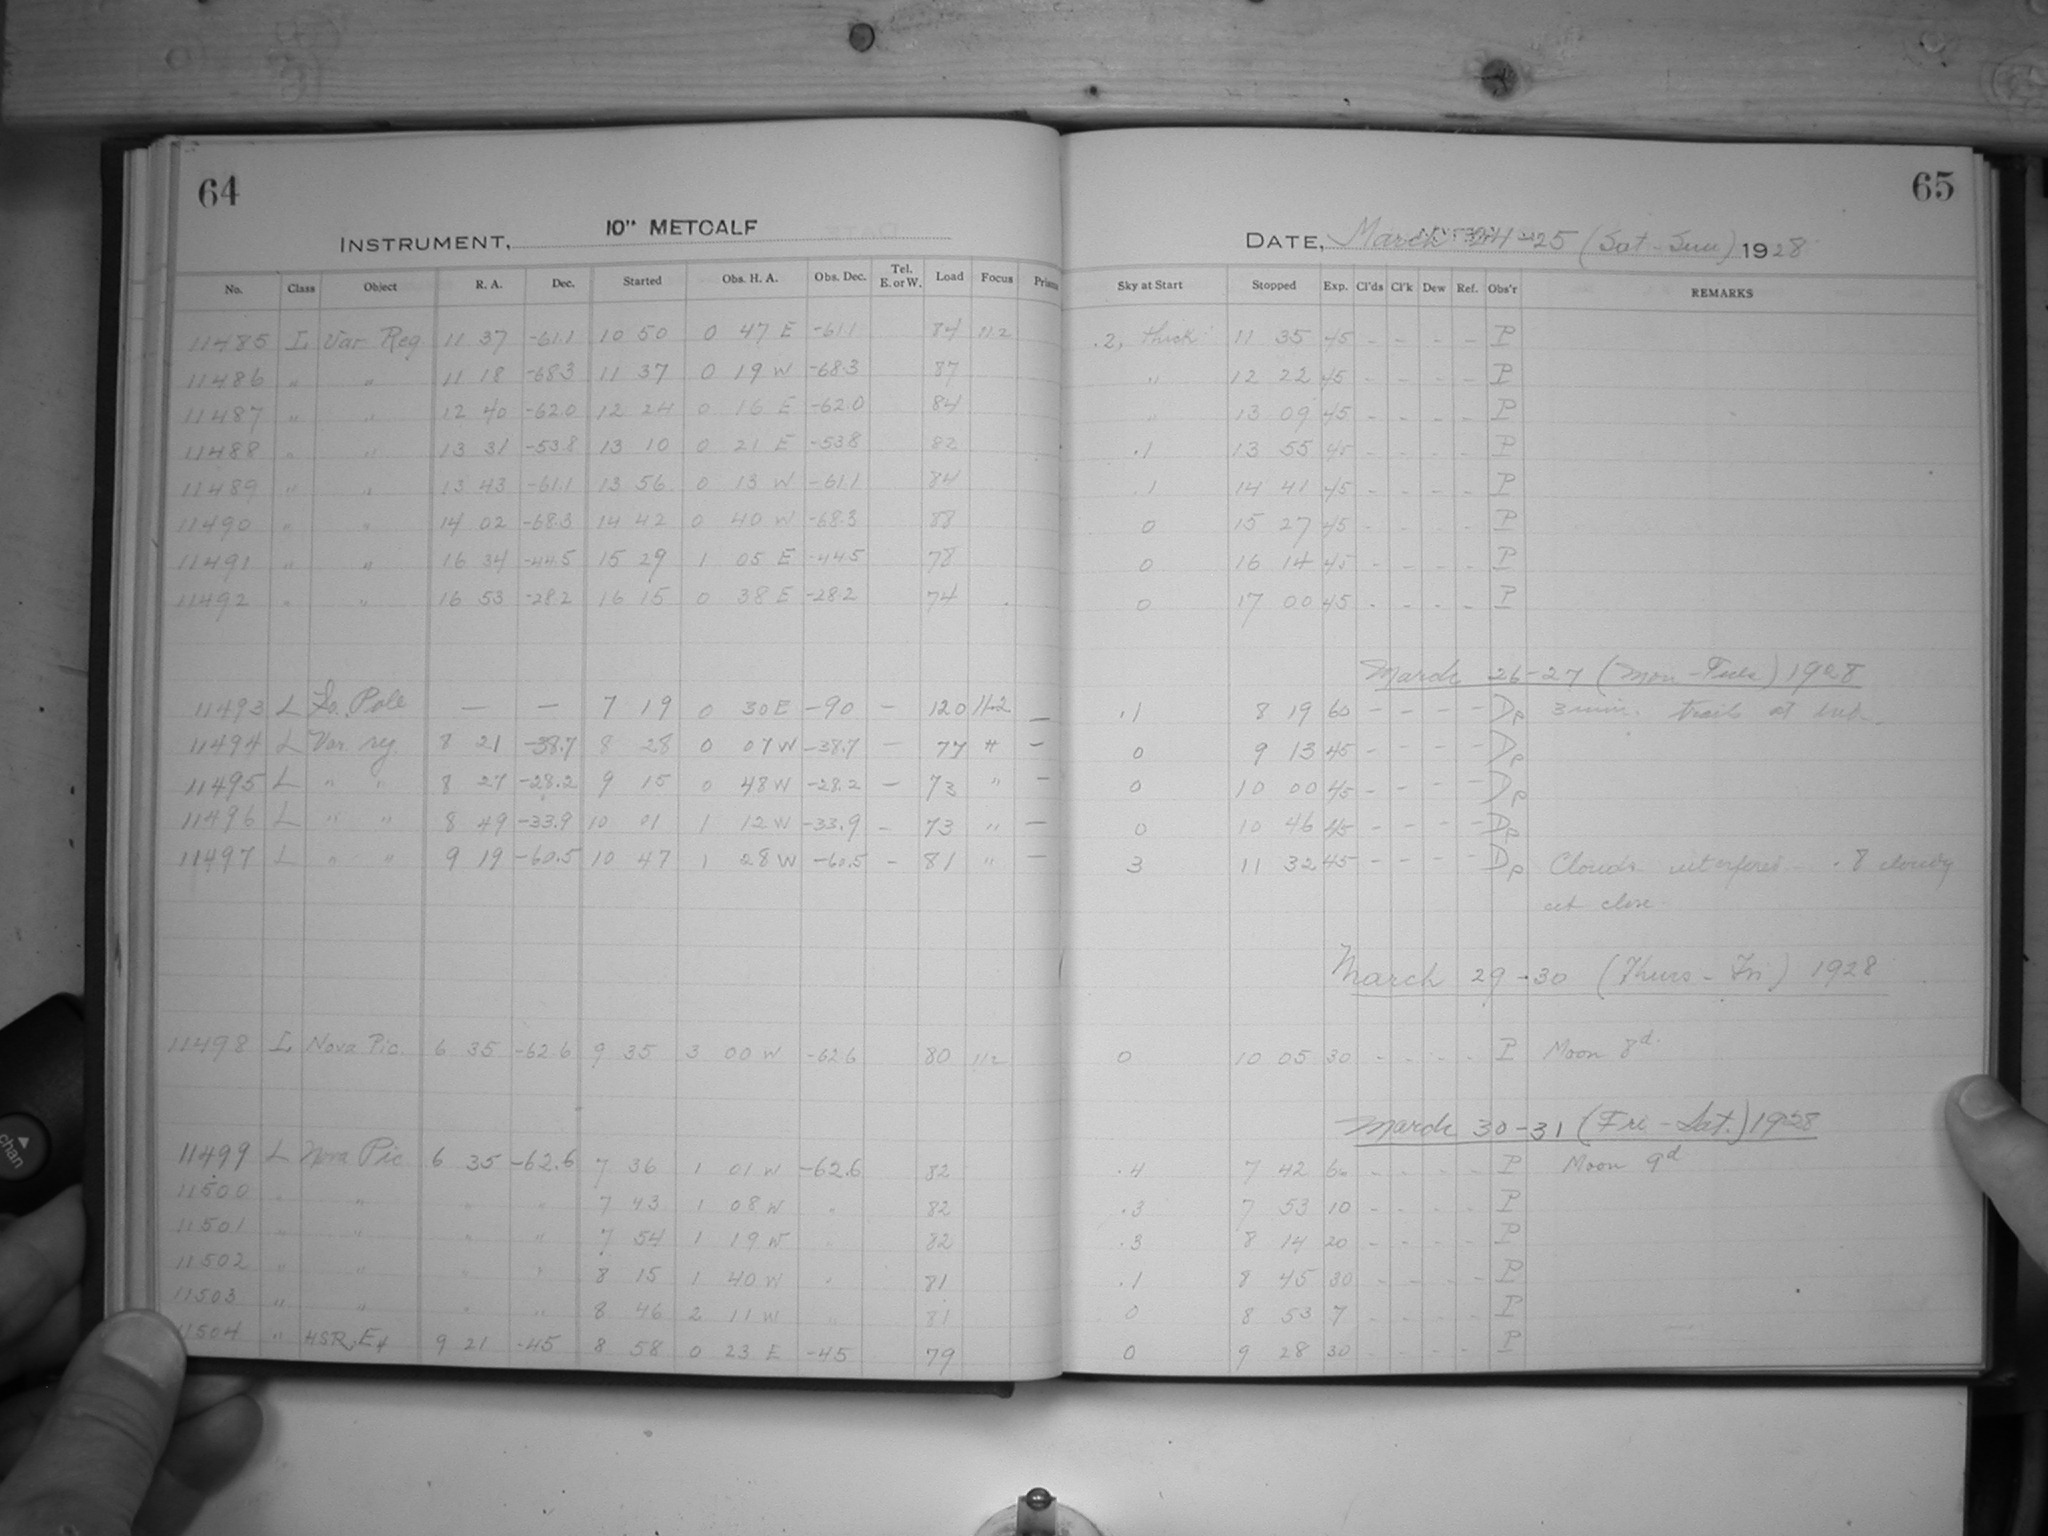 64
INSTRUMENT, 10" METCALF
No. Class Object R. A. Dec. Started Obs. H. A. Obs. Dec. Tel. E. or W. Load Focus Prisms
11485 L Var Reg 11 37 -61.1 10 50 0 47 E -61.1 84 11.2
11486 " " 11 18 -68.3 11 37 0 19 W -68.3 87
11487 " " 12 40 -62.0 12 24 0 16 E -62.0 84
11488 " " 13 31 -53.8 13 10 0 21 E -53.8 82
11489 " " 13 43 -61.1 13 56 0 13 W -61.1 84
11490 " " 14 02 -68.3 14 42 0 40 W -68.3 88
11491 " " 16 34 -44.5 15 29 1 05 E -44.5 78
11492 " " 16 53 -28.2 16 15 0 38 E -28.2 74
11493 L So. Pole — — 7 19 0 30 E -90 — 120 11.2 —
11494 L Var. reg. 8 21 -38.7 8 28 0 07 W -38.7 — 77 " —
11495 L " " 8 27 -28.2 9 15 0 48 W -28.2 — 73 " —
11496 L " " 8 49 -33.9 10 01 1 12 W -33.9 — 73 " —
11497 L " " 9 19 -60.5 10 47 1 28 W -60.5 — 81 " —
11498 L Nova Pic. 6 35 -62.6 9 35 3 00 W -62.6 80 11.2
11499 L Nova Pic 6 35 -62.6 7 36 1 01 W -62.6 82
11500 " " " " 7 43 1 08 W " 82
11501 " " " " 7 54 1 19 W " 82
11502 " " " " 8 15 1 40 W " 81
11503 " " " " 8 46 2 11 W " 81
11504 " HSR, E4 9 21 -45 8 58 0 23 E -45 79
65
DATE, March 24-25 (Sat-Sun) 1928
Sky at Start Stopped Exp. Cl'ds Cl'k Dew Ref. Obs'r REMARKS
.2, thick 11 35 45 - - - - P
" 12 22 45 - - - - P
" 13 09 45 - - - - P
.1 13 55 45 - - - - P
.1 14 41 45 - - - - P
0 15 27 45 - - - - P
0 16 14 45 - - - - P
0 17 00 45 - - - - P
March 26-27 (Mon-Tues) 1928
.1 8 19 60 - - - - Dp 3 min. trails at
0 9 13 45 - - - - Dp
0 10 00 45 - - - - Dp
0 10 46 45 - - - - Dp
3 11 32 45 - - - - Dp Clouds interfered - .8 cloudy
at close.
March 29-30 (Thurs-Fri) 1928
0 10 05 30 - - - - P Moon 8d.
March 30-31 (Fri-Sat.) 1928
.4 7 42 6 - - - - P Moon 9d
.3 7 53 10 - - - - P
.3 8 14 20 - - - - P
.1 8 45 30 - - - - P
0 8 53 7 - - - - P
0 9 28 30 - - - - P
chan